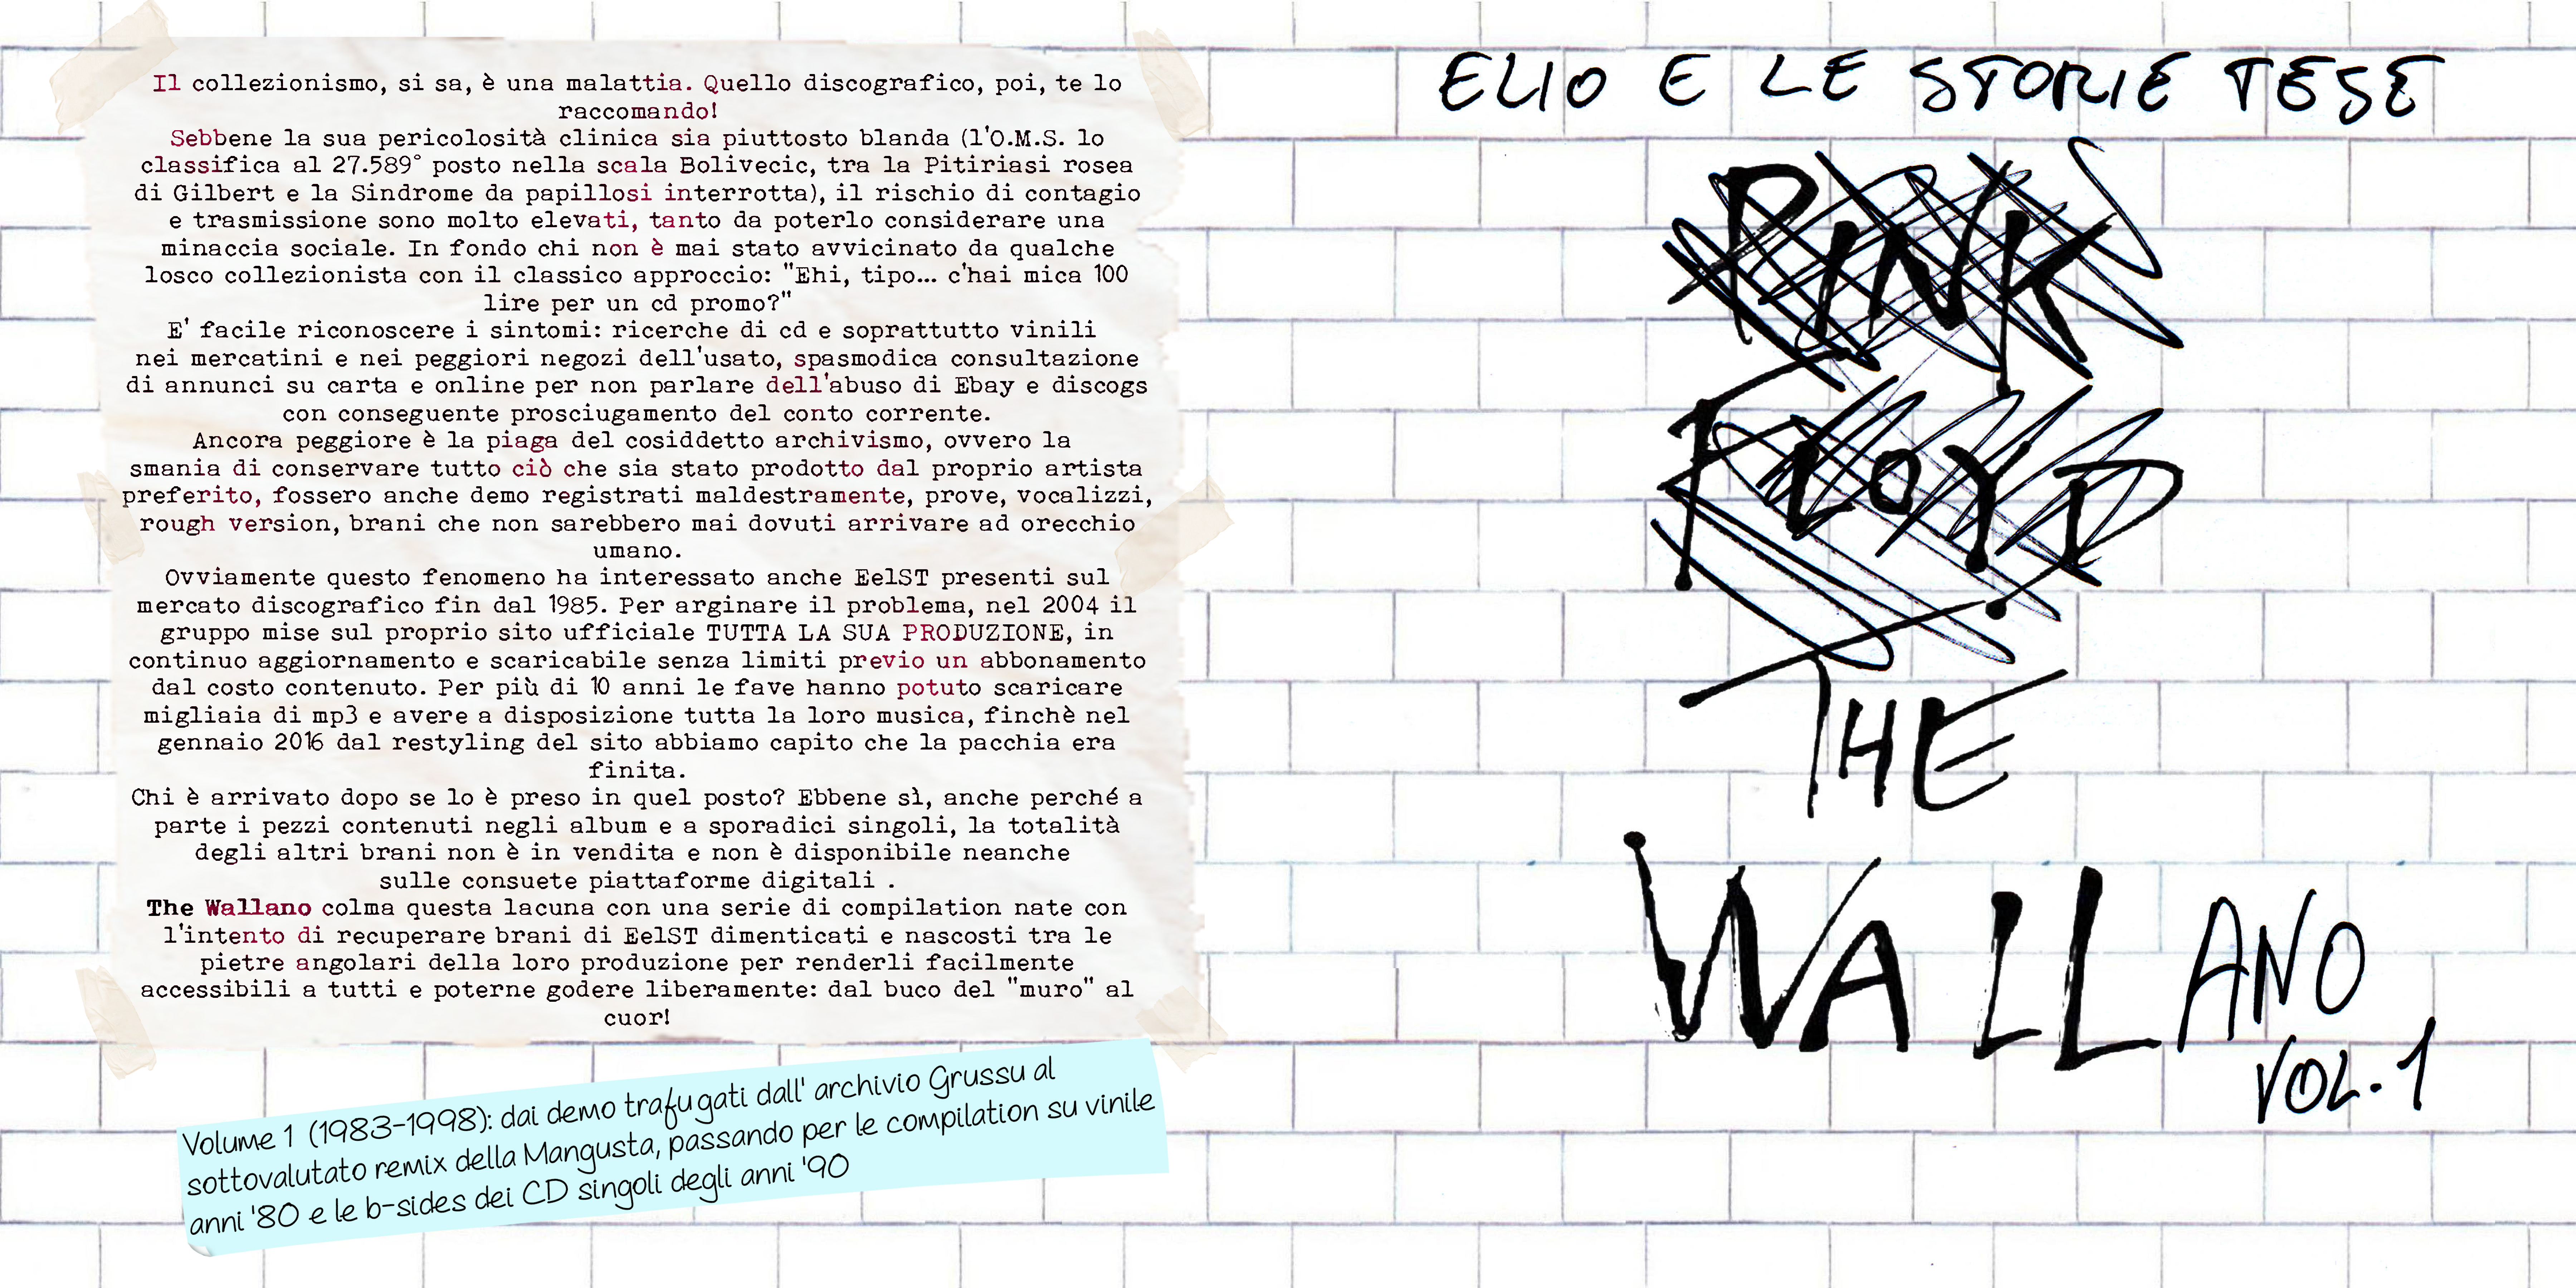 Il collezionismo, si sa, è una malattia. Quello discografico, poi, te lo
raccomando!
Sebbene la sua pericolosità clinica sia piuttosto blanda (l'O.M.S. lo
classifica al 27.589° posto nella scala Bolivecic, tra la Pitiriasi rosea
di Gilbert e la Sindrome da papillosi interrotta), il rischio di contagio
e trasmissione sono molto elevati, tanto da poterlo considerare una
minaccia sociale. In fondo chi non è mai stato avvicinato da qualche
losco collezionista con il classico approccio: "Ehi, tipo... c'hai mica 100
lire per un cd promo?"
E' facile riconoscere i sintomi: ricerche di cd e soprattutto vinili
nei mercatini e nei peggiori negozi dell'usato, spasmodica consultazione
di annunci su carta e online per non parlare dell'abuso di Ebay e discogs
con conseguente prosciugamento del conto corrente.
Ancora peggiore è la piaga del cosiddetto archivismo, ovvero la
smania di conservare tutto ciò che sia stato prodotto dal proprio artista
preferito, fossero anche demo registrati maldestramente, prove, vocalizzi,
rough version, brani che non sarebbero mai dovuti arrivare ad orecchio
umano.
Ovviamente questo fenomeno ha interessato anche EelST presenti sul
mercato discografico fin dal 1985. Per arginare il problema, nel 2004 il
gruppo mise sul proprio sito ufficiale TUTTA LA SUA PRODUZIONE, in
continuo aggiornamento e scaricabile senza limiti previo un abbonamento
dal costo contenuto. Per più di 10 anni le fave hanno potuto scaricare
migliaia di mp3 e avere a disposizione tutta la loro musica, finchè nel
gennaio 2016 dal restyling del sito abbiamo capito che la pacchia era
finita.
Chi è arrivato dopo se lo è preso in quel posto? Ebbene sì, anche perché a
parte i pezzi contenuti negli album e a sporadici singoli, la totalità
degli altri brani non è in vendita e non è disponibile neanche
sulle consuete piattaforme digitali .
The Wallano colma questa lacuna con una serie di compilation nate con
l'intento di recuperare brani di EelST dimenticati e nascosti tra le
pietre angolari della loro produzione per renderli facilmente
accessibili a tutti e poterne godere liberamente: dal buco del "muro" al
cuor!
Volume 1 (1983-1998): dai demo trafugati dall' archivio Grussu al
sottovalutato remix della Mangusta, passando per le compilation su vinile
anni '80 e le b-sides dei CD singoli degli anni '90
ELIO E LE STORIE TESE
PINK
FLOYD
THE
WALLANO
VOL. 1